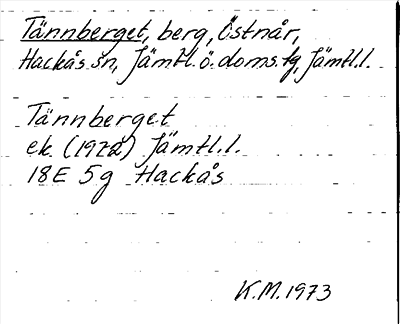 Tännberget, berg, Östnår,
Hackås sn, Jämtl. ö. doms.tg, Jämtl.l.
Tännberget
ek. (1972) Jämtl.l.
18E 5g Hackås
K.M. 1973